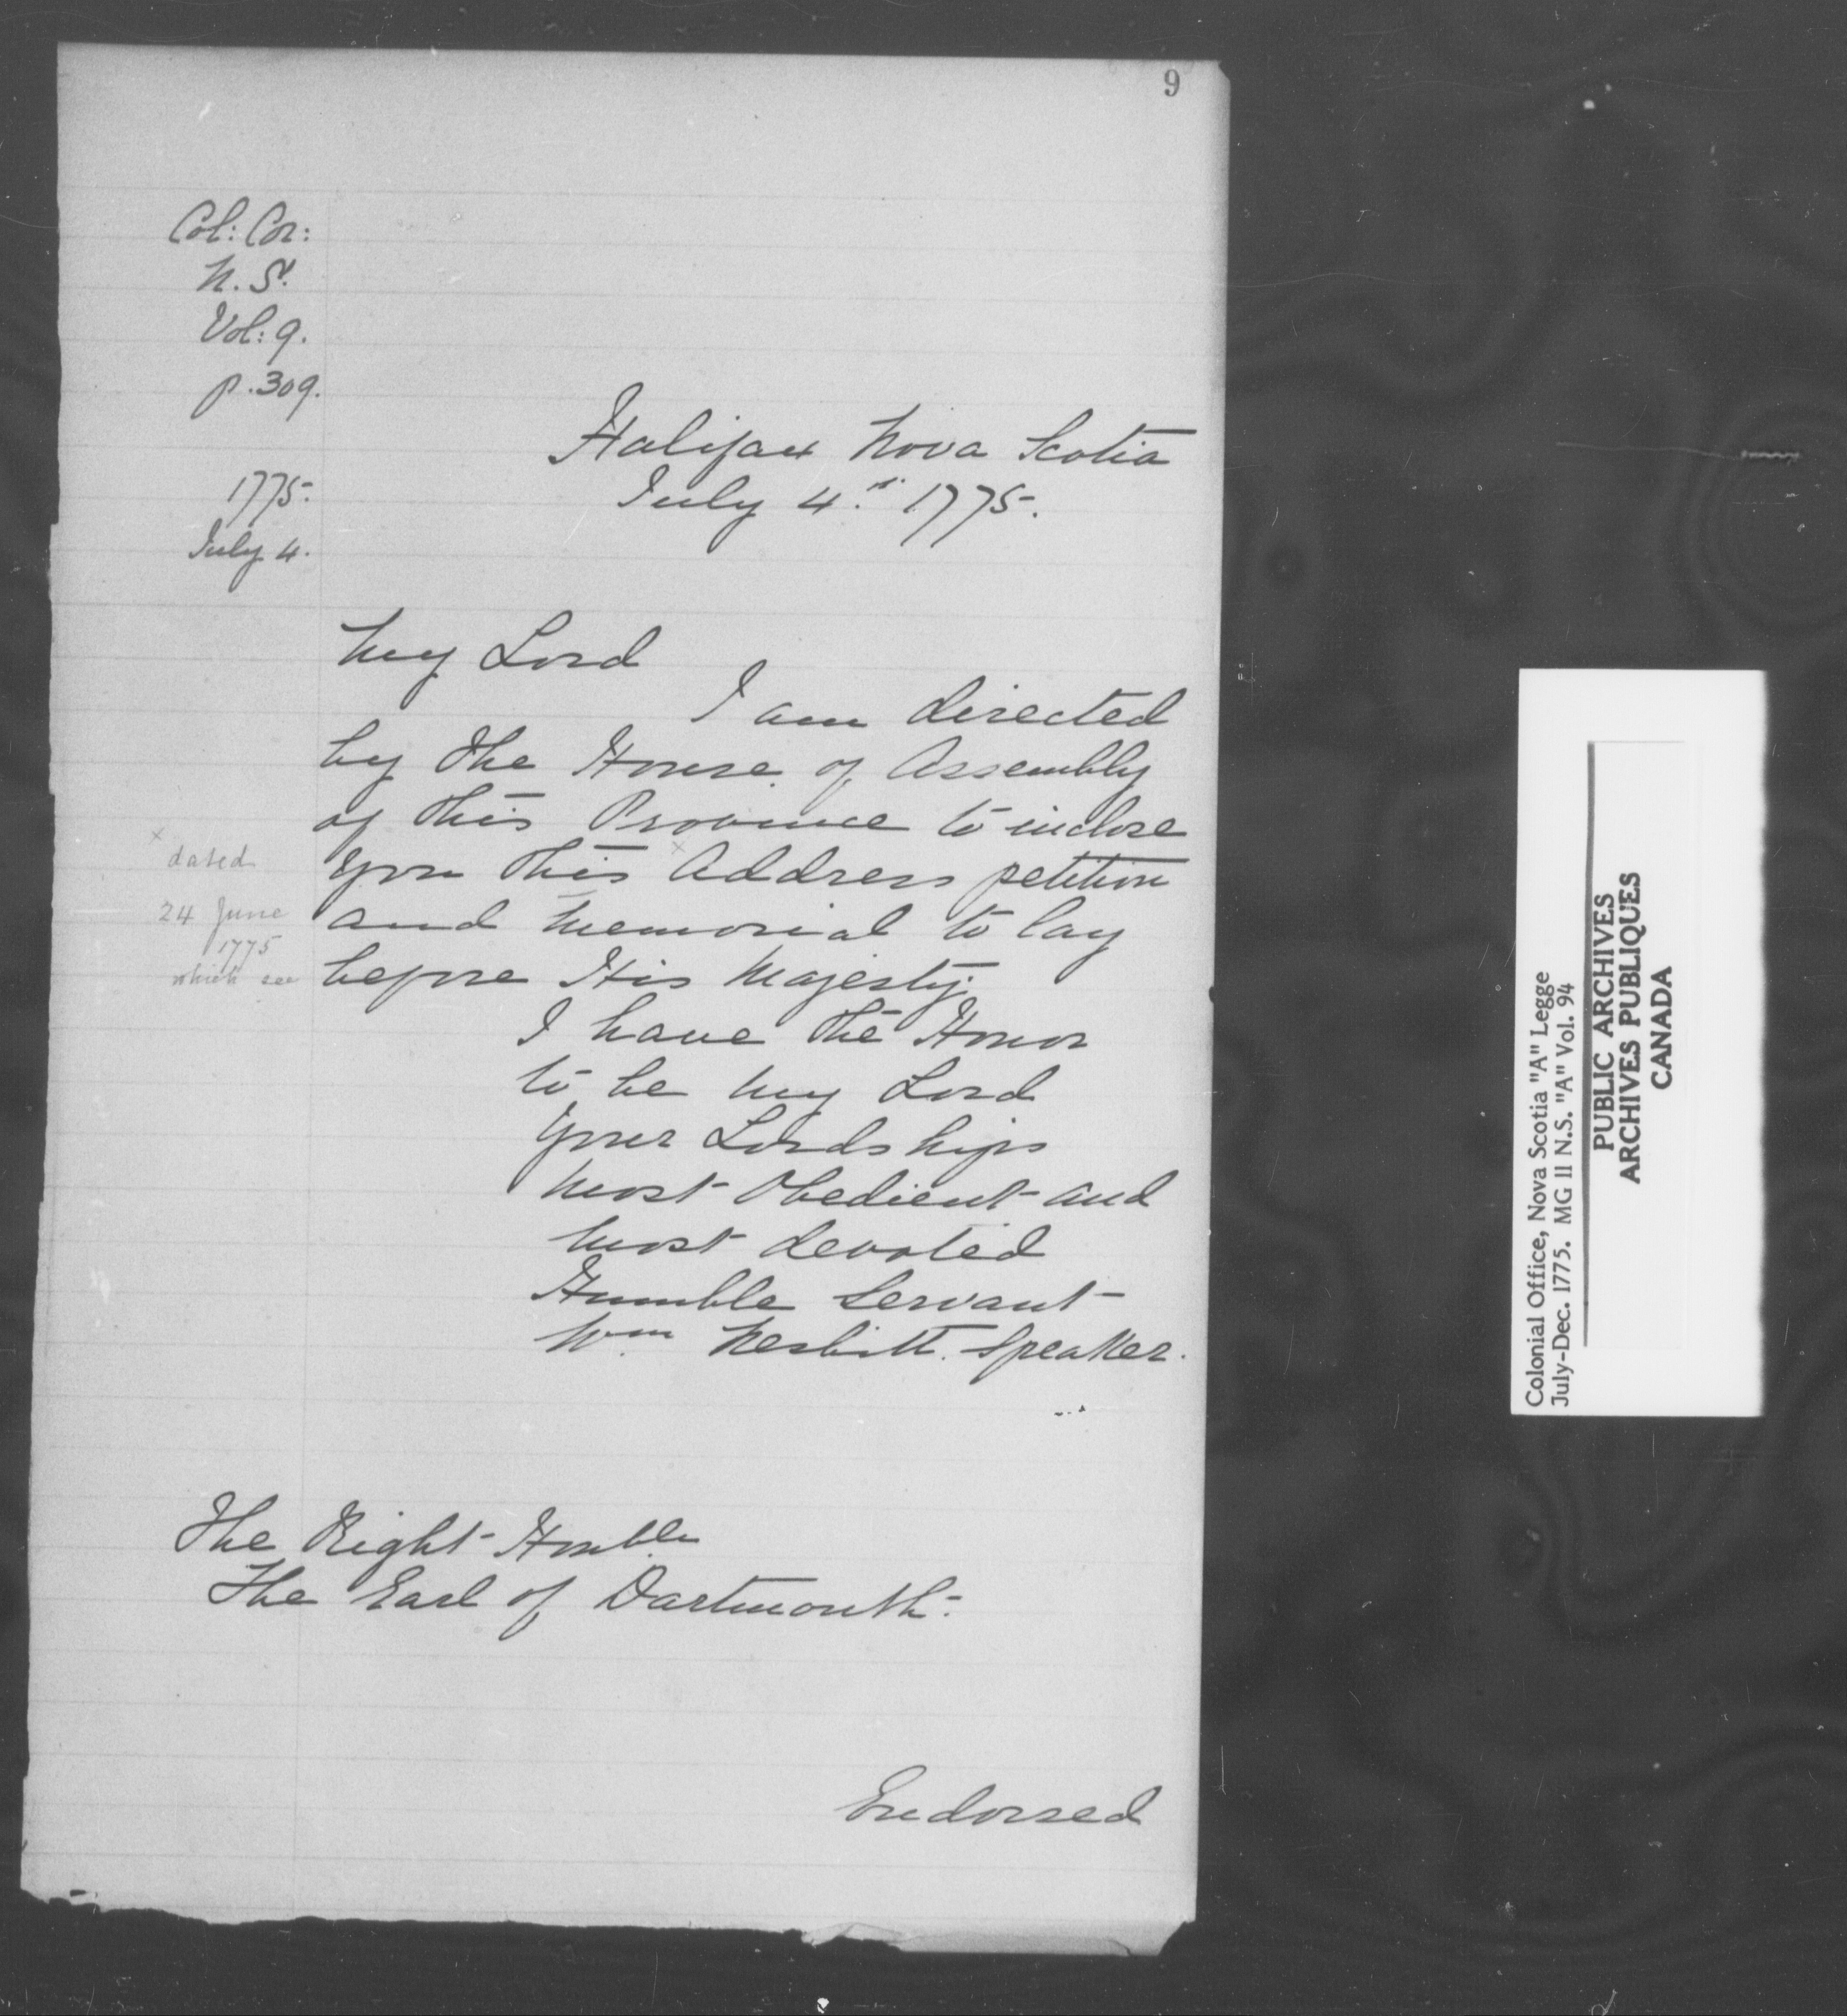 9
Col: Cor:
N. S.
Vol: 9.
p. 309.
Halifax Nova Scotia
July 4th 1775.
1775.
July 4.
My Lord
I am directed
by the House of Assembly
of this Province to inclose
you this × Address petition
and Memorial to lay
before His Majesty.
× dated
24 June
1775
which see
I have the Honor
to be My Lord
Your Lordships
Most Obedient and
Most devoted
Humble Servant
Wm Nesbitt. Speaker.
The Right Honble
The Earl of Dartmouth.
Endorsed
Colonial Office, Nova Scotia "A" Legge
July-Dec. 1775. MG 11 N.S. "A" Vol. 94
PUBLIC ARCHIVES
ARCHIVES PUBLIQUES
CANADA